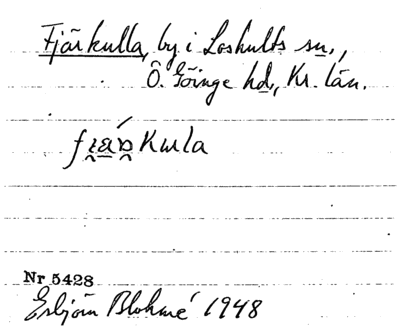 Fjärkulla, by i Loshults sn.,
Ö. Göinge hd., Kr. län.
Nr 5428
Erbjörn Blohmé 1948